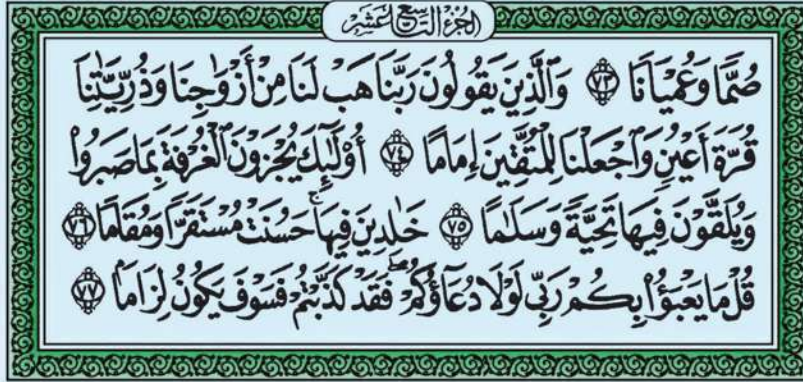 الجزء التاسع عشر
صُمًّا وَعُمْيَانًا ﴿٧٣﴾ وَٱلَّذِينَ يَقُولُونَ رَبَّنَا هَبْ لَنَا مِنْ أَزْوَٰجِنَا وَذُرِّيَّـٰتِنَا
قُرَّةَ أَعْيُنٍ وَٱجْعَلْنَا لِلْمُتَّقِينَ إِمَامًا ﴿٧٤﴾ أُو۟لَـٰٓئِكَ يُجْزَوْنَ ٱلْغُرْفَةَ بِمَا صَبَرُوا۟
وَيُلَقَّوْنَ فِيهَا تَحِيَّةً وَسَلَـٰمًا ﴿٧٥﴾ خَـٰلِدِينَ فِيهَا ۚ حَسُنَتْ مُسْتَقَرًّا وَمُقَامًا ﴿٧٦﴾
قُلْ مَا يَعْبَؤُا۟ بِكُمْ رَبِّى لَوْلَا دُعَآؤُكُمْ ۖ فَقَدْ كَذَّبْتُمْ فَسَوْفَ يَكُونُ لِزَامًۢا ﴿٧٧﴾